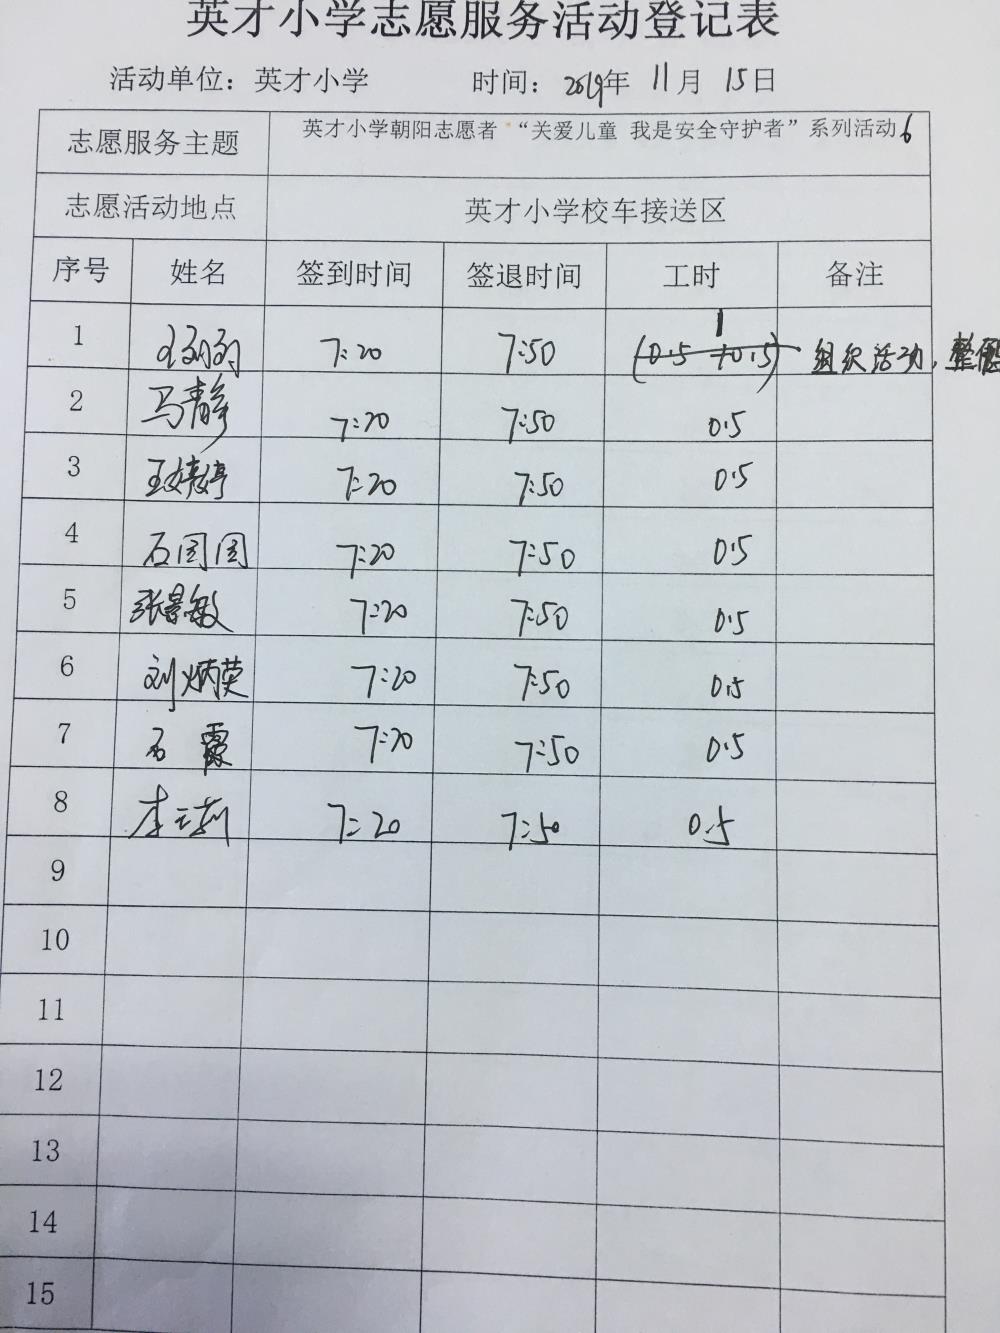 英才小学志愿服务活动登记表
活动单位：英才小学 时间：2019年 11月 15日
志愿服务主题 英才小学朝阳志愿者“关爱儿童 我是安全守护者”系列活动6
志愿活动地点 英才小学校车接送区
序号 姓名 签到时间 签退时间 工时 备注
1 7:20 7:50 1 (0.5+0.5) 组织活动，整
2 马静 7:20 7:50 0.5
3 王婷婷 7:20 7:50 0.5
4 石园园 7:20 7:50 0.5
5 张景敏 7:20 7:50 0.5
6 刘炳英 7:20 7:50 0.5
7 石霞 7:20 7:50 0.5
8 李 7:20 7:50 0.5
9
10
11
12
13
14
15